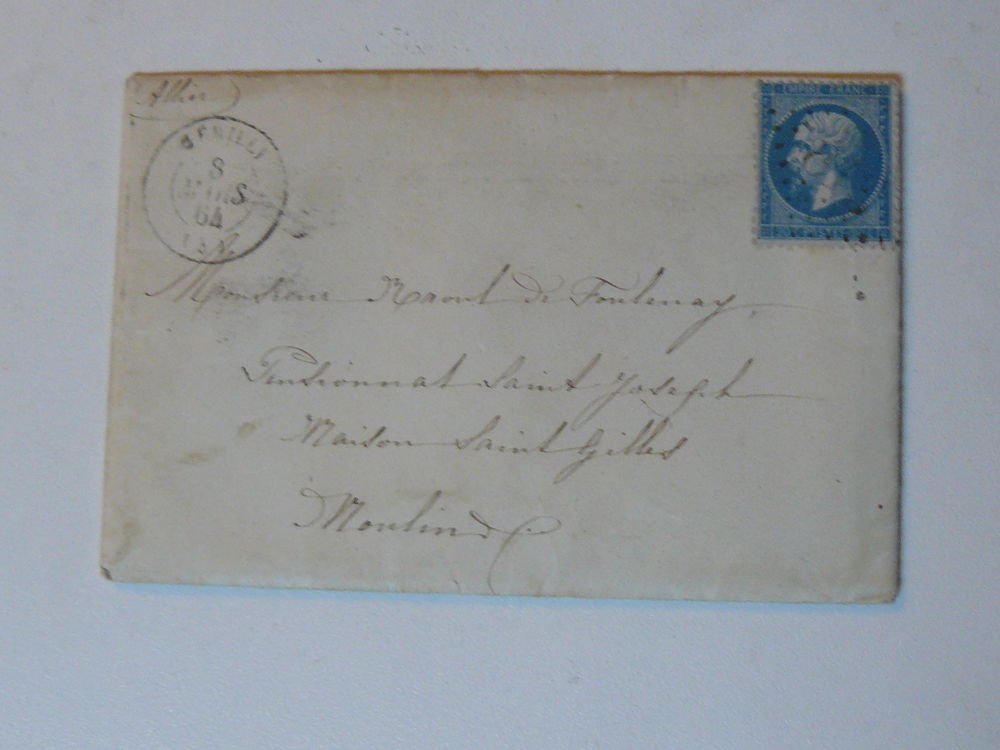 Allier
CÉRILLY
8
MARS
64
EMPIRE FRANC
Monsieur Raoul De Fontenay,
Pensionnat Saint Joseph
Maison Saint Gilles
Moulins